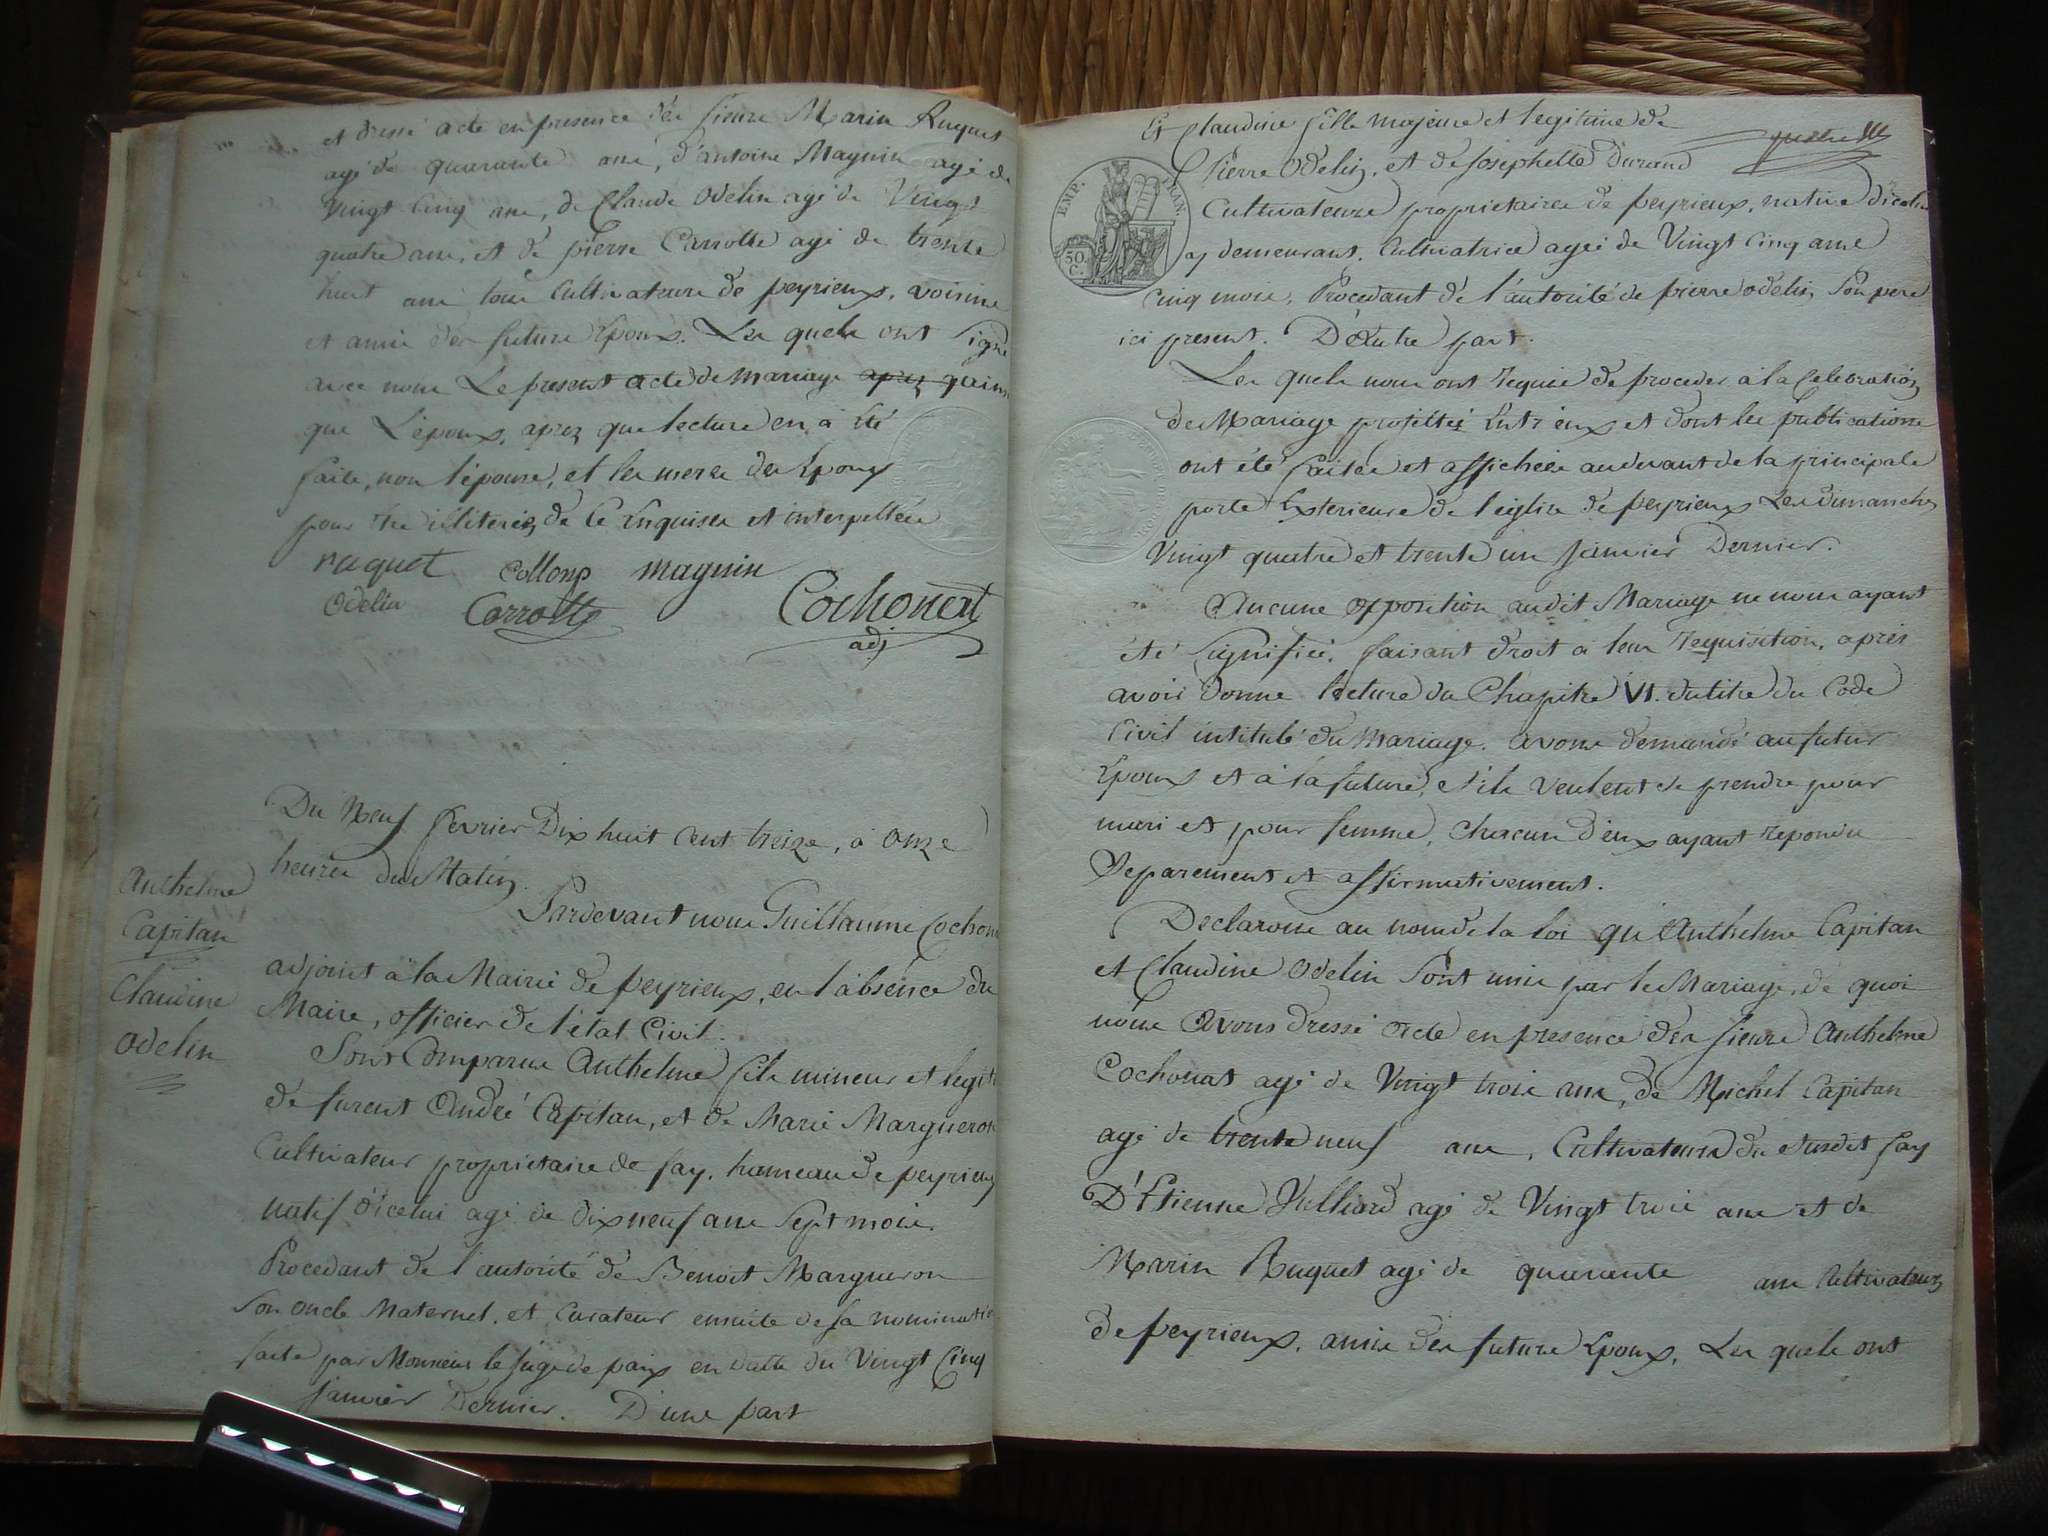 et dressé acte en presence des sieurs Marin Ruquet
agé de quarante ans, d'antoine Magnin agé de
Vingt Cinq ans, de Claude Odelin agé de Vingt
quatre ans, et de pierre Carrotte agé de trente
huit ans tous Cultivateurs de peyrieux, voisins
et amis des futurs Epoux. Les quels ont Signé
avec nous Le present acte de mariage apres qu'ainsi
que L'epoux, apres que lecture en a été
faite, non l'epouse, et les meres des Epoux
pour être illiterés de ce Enquises et interpellées
ruquet Collomp magnin
Odelin Carrotte Cochonat
adj
Du Neuf fevrier Dix huit cent treize, à onze
heures du Matin.
Anthelme
Capitan
Claudine
Odelin
Pardevant nous Guillaume Cochon
adjoint à la Mairie de peyrieux, en l'absence du
Maire, officier de l'état Civil.
Sont Comparus Anthelme fils mineur et legiti
de furent André Capitan, et de Marie Margueron
Cultivateur proprietaire de fay, hameau de peyrieux
natif d'icelui agé de dix neuf ans Sept mois.
Procedant de l'autorité de Benoit Margueron
Son oncle Maternel, et Curateur ensuite de sa nominatio
faite par Monsieur le Juge de paix en datte du Vingt Cinq
janvier Dernier. D'une part
Et Claudine fille majeure et legitime de
Pierre Odelin, et de Josephette Durand
EMP. FRAN.
50.
C.
Cultivateurs proprietaires de peyrieux, native d'icelui
y demeurant, Cultivatrice agée de Vingt Cinq ans
Cinq mois, Procedant de l'autorité de pierre odelin, Son pere
ici present. D'Autre part.
Les quels nous ont requis de proceder à la Celebration
de Mariage projetté Entr'eux et dont les publications
ont été faites et affichées au devant de la principale
porte Exterieure de l'eglise de peyrieux Les dimanches
Vingt quatre et trente un janvier Dernier.
Aucune opposition audit Mariage ne nous ayant
été Signifiée, faisant droit a leur requisition, après
avoir donné lecture du Chapitre VI. du titre du Code
Civil intitulé du Mariage. avons demandé au futur
Epoux et à la future, s'ils veulent se prendre pour
mari et pour femme, chacun d'eux ayant repondu
Separement et affirmativement.
Declarons au nom de la loi qu'Anthelme Capitan
et Claudine Odelin Sont unis par le Mariage, de quoi
nous Avons dressé acte en presence des sieurs Anthelme
Cochonat agé de Vingt trois ans, de Michel Capitan
agé de trente neuf ans, Cultivateurs du susdit fay
D'Etienne Julliard agé de Vingt trois ans et de
Marin Ruquet agé de quarante ans Cultivateurs
de peyrieux, amis des futurs Epoux, Les quels ont